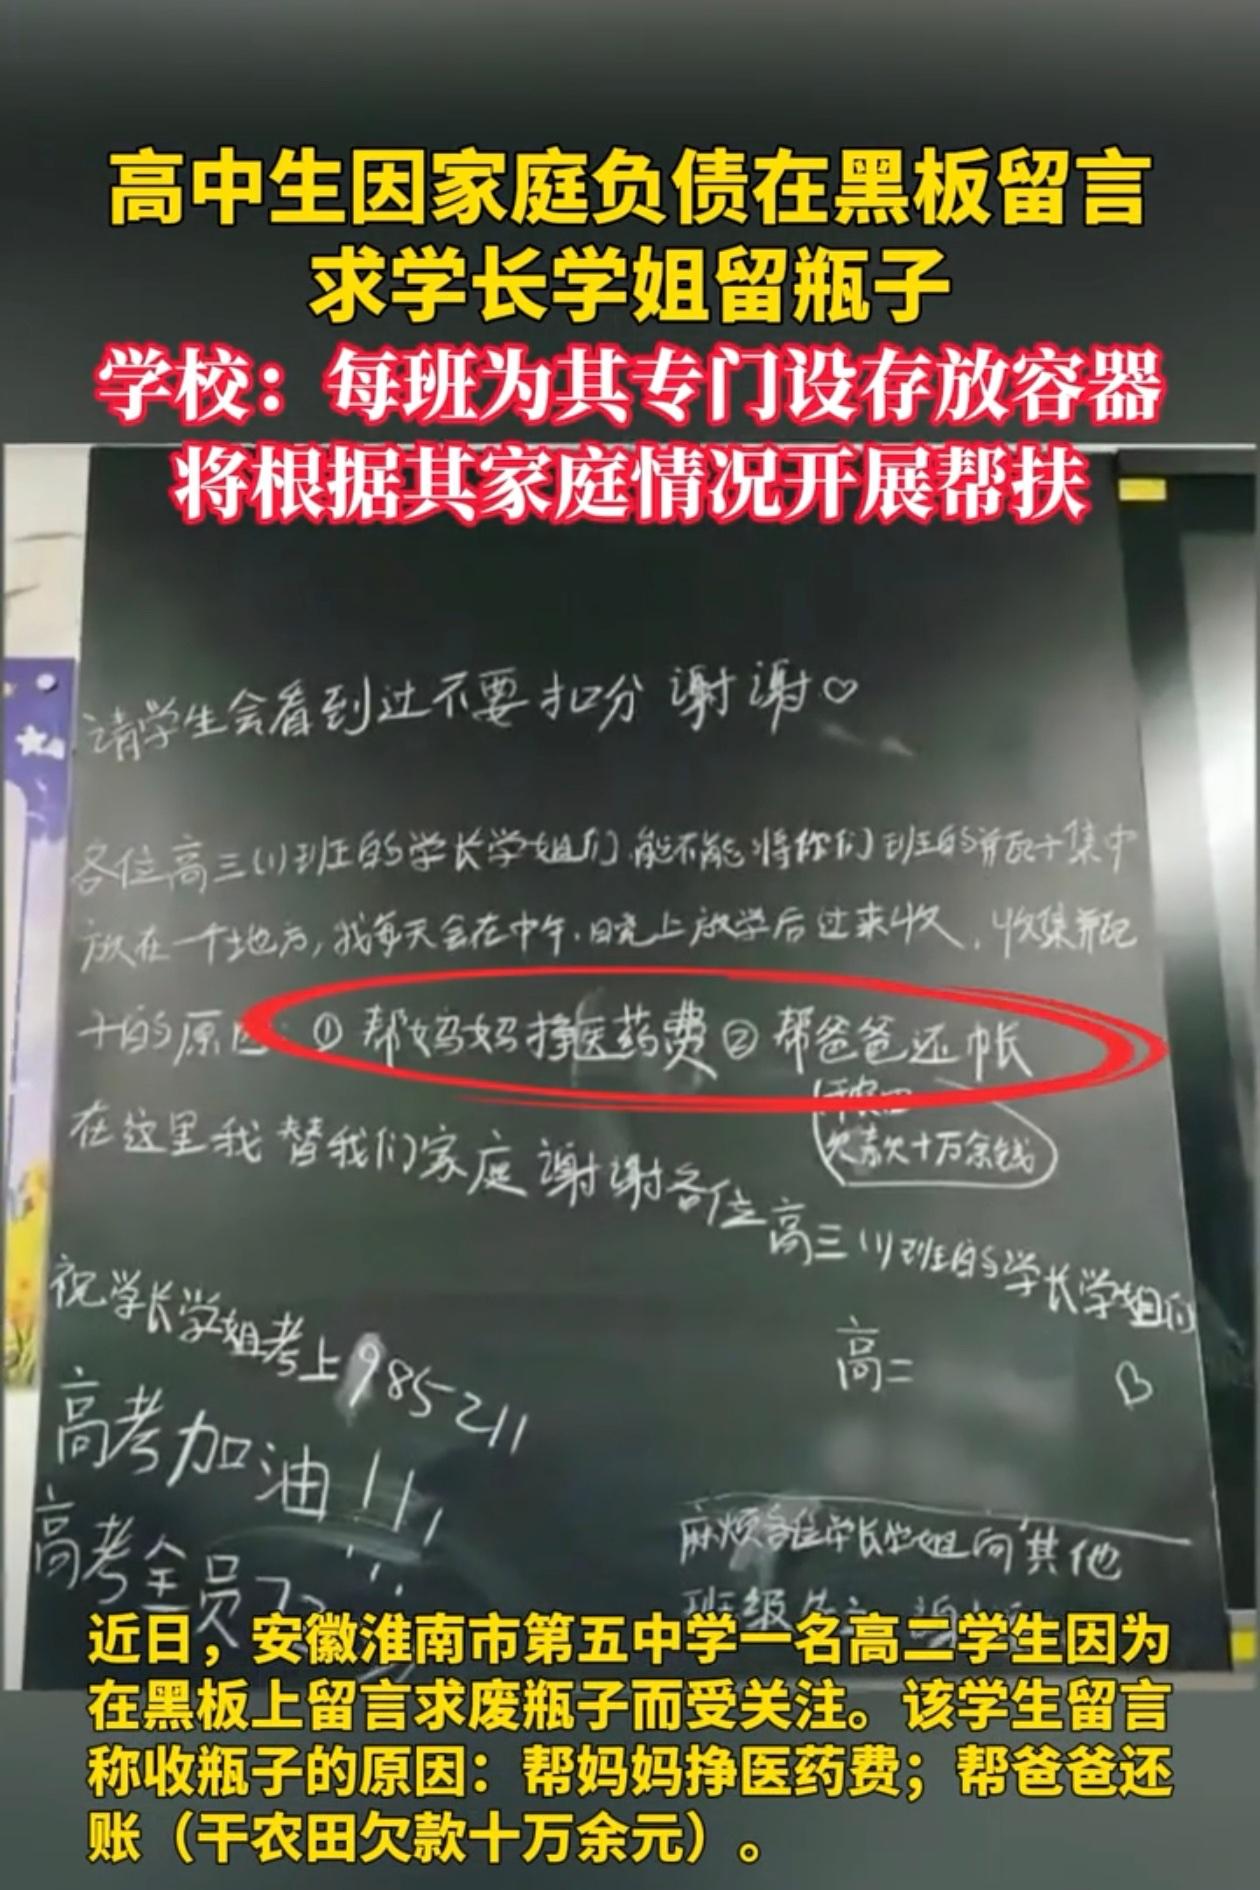 高中生因家庭负债在黑板留言
求学长学姐留瓶子
学校：每班为其专门设存放容器
将根据其家庭情况开展帮扶
请学生会看到过不要扣分 谢谢♡
各位高三(1)班的学长学姐们,能不能将你们班的瓶子集中
放在一个地方,我每天会在中午、晚上放学后过来收,收集瓶
子的原因: ① 帮妈妈挣医药费 ② 帮爸爸还帐
干农田
欠款十万余钱
在这里我替我们家庭谢谢各位高三(1)班的学长学姐们
高二
祝学长学姐考上985 211
高考加油!!!
高考全员
麻烦各位学长学姐向其他
班级
近日，安徽淮南市第五中学一名高二学生因为
在黑板上留言求废瓶子而受关注。该学生留言
称收瓶子的原因：帮妈妈挣医药费；帮爸爸还
账（干农田欠款十万余元）。